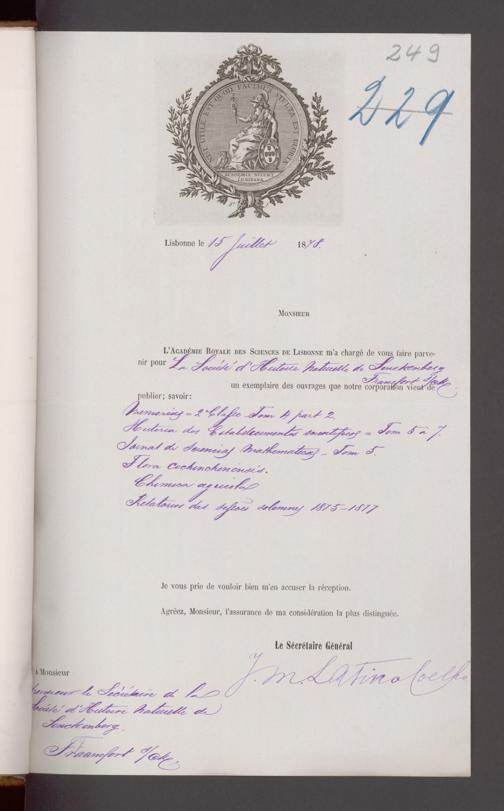 249
229
NISI UTILE EST QUOD FACIMUS STULTA EST GLORIA
ACADEMIA SCIENT
Lisbonne le 15 Juillet 1878.
MONSIEUR
L'ACADÉMIE ROYALE DES SCIENCES DE LISBONNE m'a chargé de vous faire parve-
nir pour La Société d'Histoire Naturelle de Senckenberg
Francfort s/Mk
un exemplaire des ouvrages que notre corporation vient de
publier; savoir:
Memorias = 2ª Classe Tom 4 part 2.
Historia dos Estabelecimentos scientificos = Tom 5 a 7.
Jornal de Sciencias Mathematicas = Tom 5.
Flora cochinchinensis.
Chimica agricola
Relatorios das sessões solemnes 1875-1877
Je vous prie de vouloir bien m'en accuser la réception.
Agréez, Monsieur, l'assurance de ma considération la plus distinguée.
Le Sécrétaire Général
J. M. Latino Coelho
à Monsieur
Monsieur le Secrétaire de la
Société d'Histoire Naturelle de
Senckenberg
Francfort s/Mk.